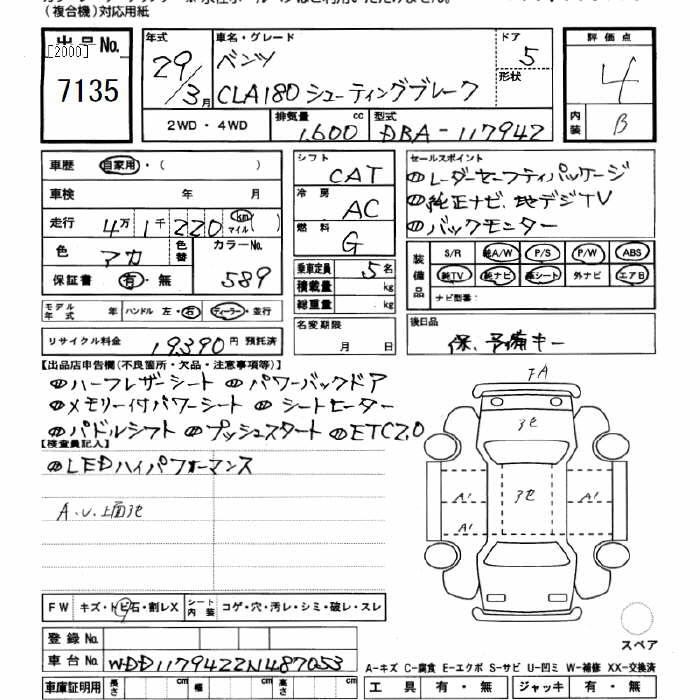 (複合機)対応用紙
出品No.
[2000]
7135
年式 29/3月
車名・グレード ベンツ CLA180 シューティングブレーク
ドア 5
形状
2WD・4WD
排気量 1,600 cc
型式 DBA-117942
評価点 4
内装 B
車歴 自家用・( )
車検 年 月
走行 4万1千220 km マイル ( )
色 アカ
色替
カラーNo. 589
保証書 有・無
モデル年式 年 ハンドル 左・右 ディーラー・並行
リサイクル料金 19,390 円 預託済
シフト CAT
冷房 AC
燃料 G
乗車定員 5名
積載量 kg
総重量 kg
名変期限 月 日
セールスポイント
レーダーセーフティパッケージ
純正ナビ、地デジTV
バックモニター
装備品
S/R 純A/W P/S P/W ABS
純TV 純ナビ 革シート 外ナビ エアB
ナビ型番:
後日品
保、予備キー
【出品店申告欄(不良箇所・欠品・注意事項等)】
ハーフレザーシート パワーバックドア
メモリー付パワーシート シートヒーター
パドルシフト プッシュスタート ETC2.0
【検査員記入】
LEDハイパフォーマンス
A.U.上面3化
FA
3化
3化
A1
A1
A1
FW キズ・トビ石・割レX
シート内装 コゲ・穴・汚レ・シミ・破レ・スレ
スペア
登録No.
車台No. WDD1179422N487053
A-キズ C-腐食 E-エクボ S-サビ U-凹ミ W-補修 XX-交換済
車庫証明用 長さ cm 幅 cm 高さ cm
工具 有・無 ジャッキ 有・無